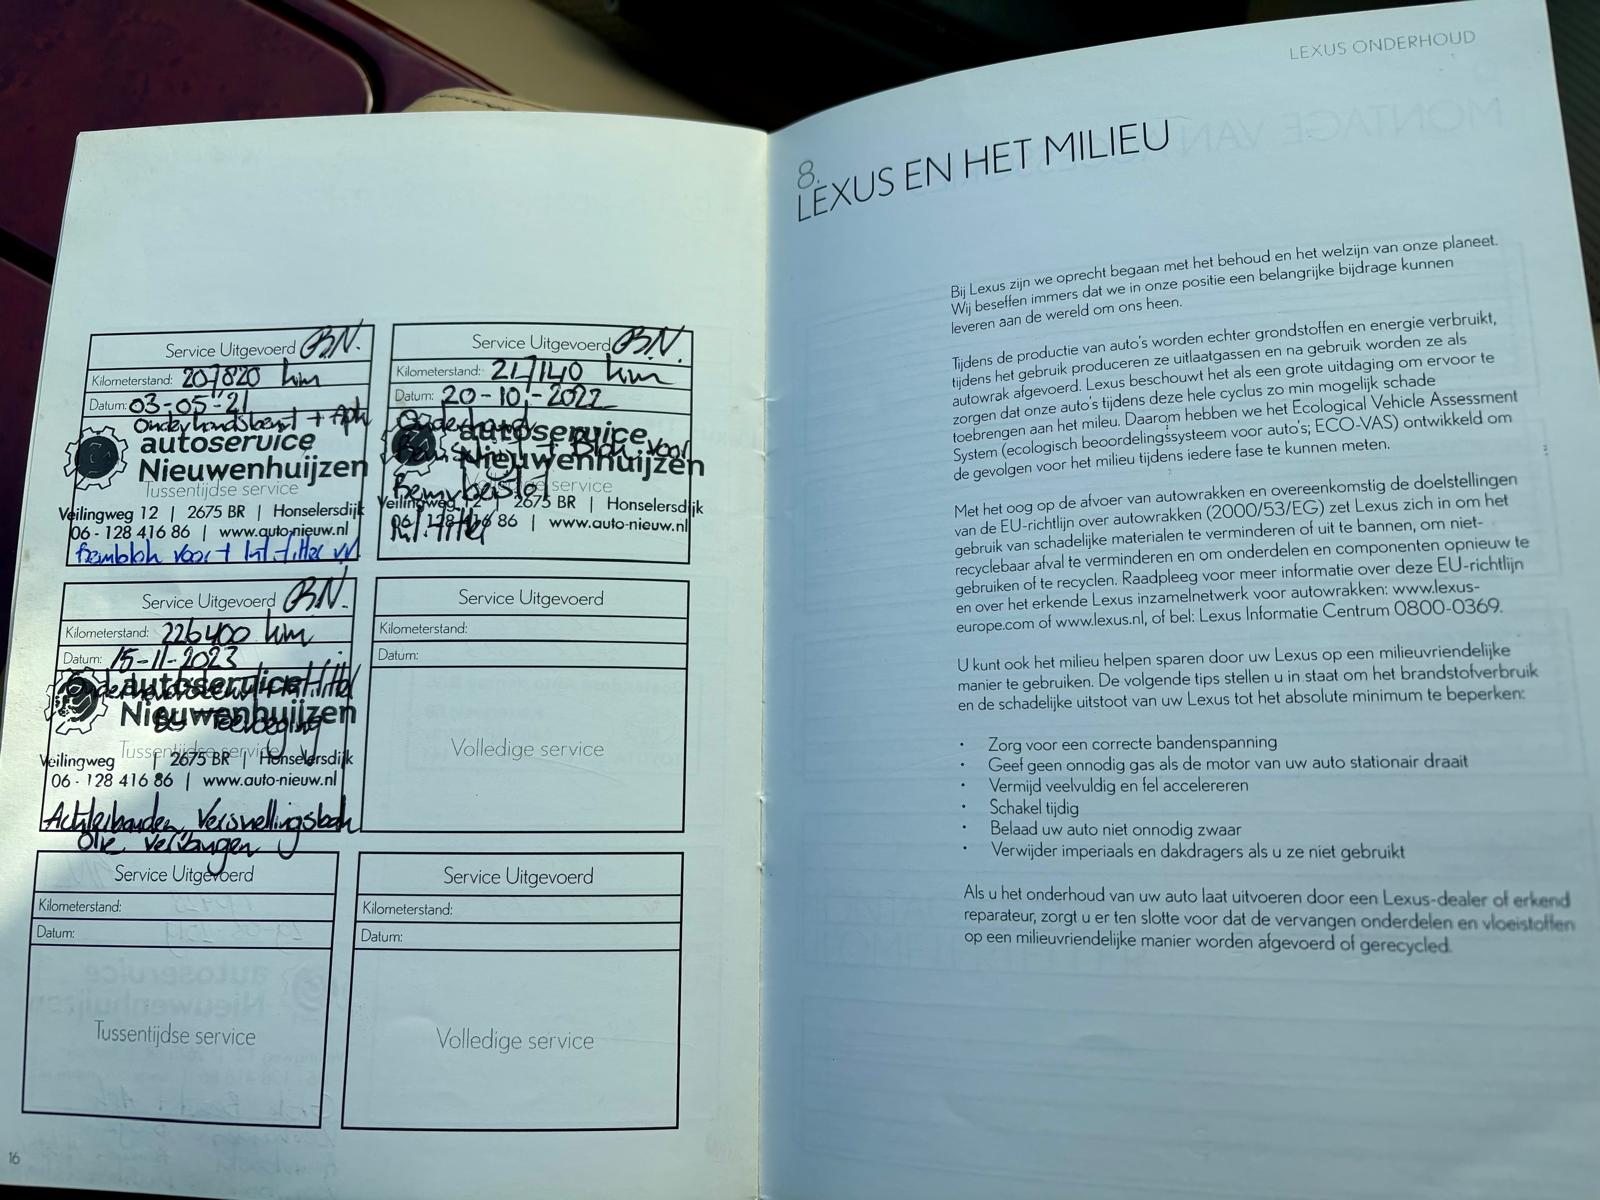 Service Uitgevoerd BN.
Kilometerstand: 207820 km
Datum: 03-05-21
Onderhoudsbeurt + Apk
autoservice
Nieuwenhuijzen
Tussentijdse service
Veilingweg 12 | 2675 BR | Honselersdijk
06 - 128 416 86 | www.auto-nieuw.nl
Remblok voor + Int filter
Service Uitgevoerd BN.
Kilometerstand: 217140 km
Datum: 20-10-2022
Onderhoud
autoservice
voor
Nieuwenhuijzen
service
Veilingweg 12 | 2675 BR | Honselersdijk
06 - 128 416 86 | www.auto-nieuw.nl
filter
Service Uitgevoerd BN.
Kilometerstand: 226400 km
Datum: 15-11-2023
autoservice
Nieuwenhuijzen
Tussentijdse service
Veilingweg | 2675 BR | Honselersdijk
06 - 128 416 86 | www.auto-nieuw.nl
Achterbanden, Versnellingsbak
Olie vervangen
Service Uitgevoerd
Kilometerstand:
Datum:
Volledige service
Service Uitgevoerd
Kilometerstand:
Datum:
Tussentijdse service
Service Uitgevoerd
Kilometerstand:
Datum:
Volledige service
16
LEXUS ONDERHOUD
8.
LEXUS EN HET MILIEU
Bij Lexus zijn we oprecht begaan met het behoud en het welzijn van onze planeet.
Wij beseffen immers dat we in onze positie een belangrijke bijdrage kunnen
leveren aan de wereld om ons heen.
Tijdens de productie van auto's worden echter grondstoffen en energie verbruikt,
tijdens het gebruik produceren ze uitlaatgassen en na gebruik worden ze als
autowrak afgevoerd. Lexus beschouwt het als een grote uitdaging om ervoor te
zorgen dat onze auto's tijdens deze hele cyclus zo min mogelijk schade
toebrengen aan het mileu. Daarom hebben we het Ecological Vehicle Assessment
System (ecologisch beoordelingssysteem voor auto's; ECO-VAS) ontwikkeld om
de gevolgen voor het milieu tijdens iedere fase te kunnen meten.
Met het oog op de afvoer van autowrakken en overeenkomstig de doelstellingen
van de EU-richtlijn over autowrakken (2000/53/EG) zet Lexus zich in om het
gebruik van schadelijke materialen te verminderen of uit te bannen, om niet-
recyclebaar afval te verminderen en om onderdelen en componenten opnieuw te
gebruiken of te recyclen. Raadpleeg voor meer informatie over deze EU-richtlijn
en over het erkende Lexus inzamelnetwerk voor autowrakken: www.lexus-
europe.com of www.lexus.nl, of bel: Lexus Informatie Centrum 0800-0369.
U kunt ook het milieu helpen sparen door uw Lexus op een milieuvriendelijke
manier te gebruiken. De volgende tips stellen u in staat om het brandstofverbruik
en de schadelijke uitstoot van uw Lexus tot het absolute minimum te beperken:
• Zorg voor een correcte bandenspanning
• Geef geen onnodig gas als de motor van uw auto stationair draait
• Vermijd veelvuldig en fel accelereren
• Schakel tijdig
• Belaad uw auto niet onnodig zwaar
• Verwijder imperiaals en dakdragers als u ze niet gebruikt
Als u het onderhoud van uw auto laat uitvoeren door een Lexus-dealer of erkend
reparateur, zorgt u er ten slotte voor dat de vervangen onderdelen en vloeistoffen
op een milieuvriendelijke manier worden afgevoerd of gerecycled.